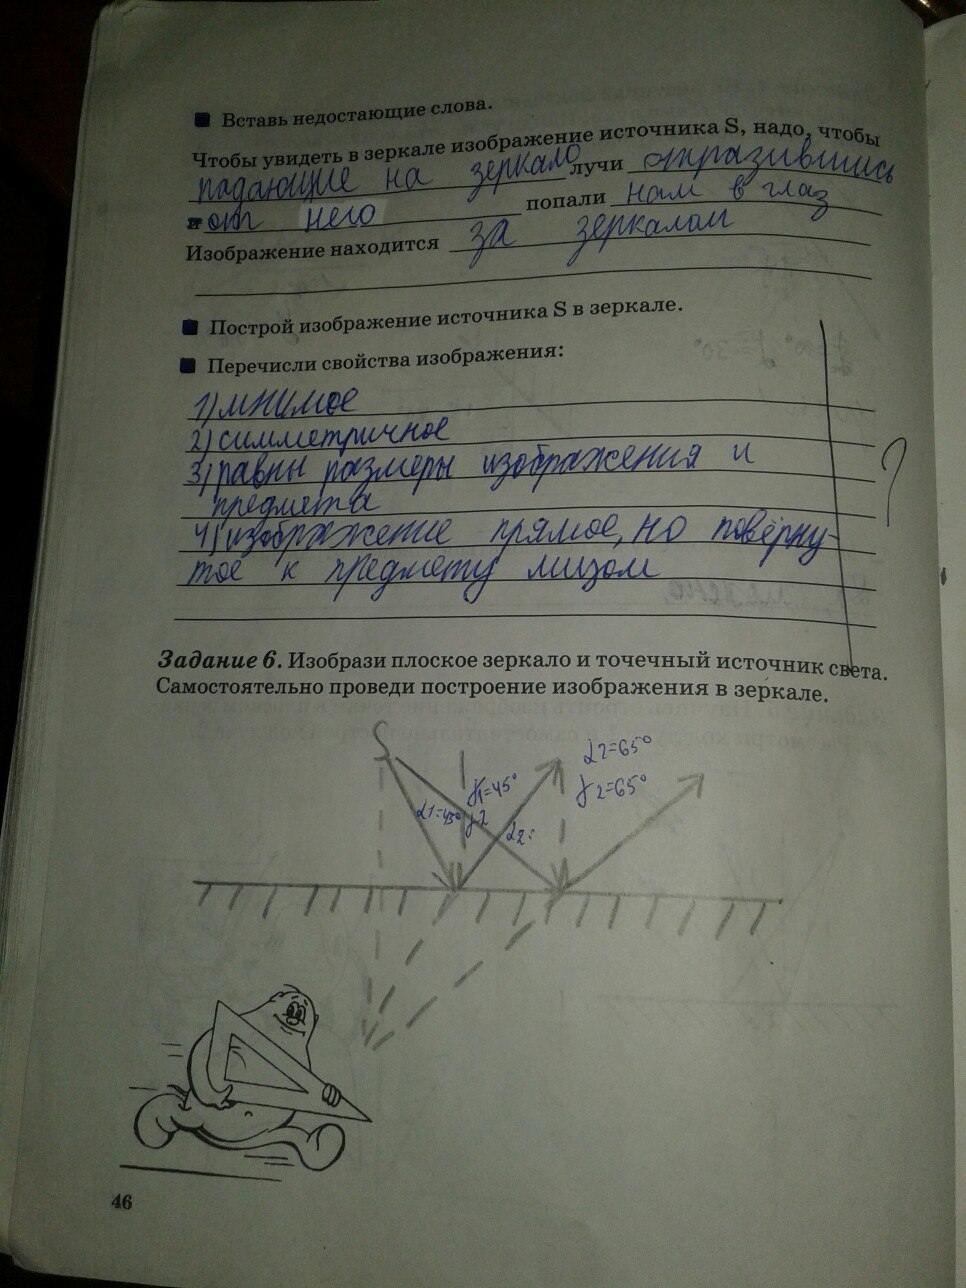 Вставь недостающие слова.
Чтобы увидеть в зеркале изображение источника S, надо, чтобы
падающие на зеркало лучи отразившись
от него попали нам в глаз
Изображение находится за зеркалом
Построй изображение источника S в зеркале.
Перечисли свойства изображения:
1) мнимое
2) симметричное
3) равны размеры изображения и
предмета
4) изображение прямое, но повёрну-
тое к предмету лицом
?
Задание 6. Изобрази плоское зеркало и точечный источник света.
Самостоятельно проведи построение изображения в зеркале.
S
α2=65°
γ1=45°
γ2=65°
α1=45°
γ2
α2=
46